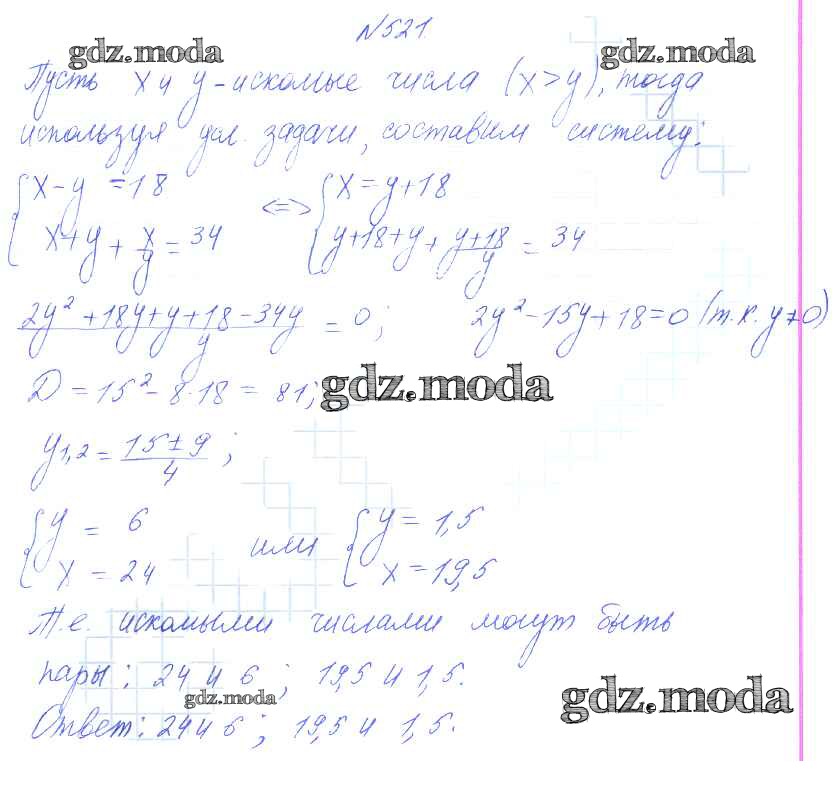 №521
gdz.moda gdz.moda
Пусть x и y - искомые числа (x>y), тогда
используя усл. задачи, составим систему:
{ x-y = 18 <=> { x = y+18
x+y+x/y = 34 y+18+y+(y+18)/y = 34
(2y²+18y+y+18-34y)/y = 0; 2y²-15y+18=0 (т.к. y≠0)
D = 15²-8·18 = 81; gdz.moda
y1,2 = (15±9)/4;
{ y = 6 или { y = 1,5
x = 24 x = 19,5
Т.е. искомыми числами могут быть
пары: 24 и 6; 19,5 и 1,5.
gdz.moda gdz.moda
Ответ: 24 и 6; 19,5 и 1,5.